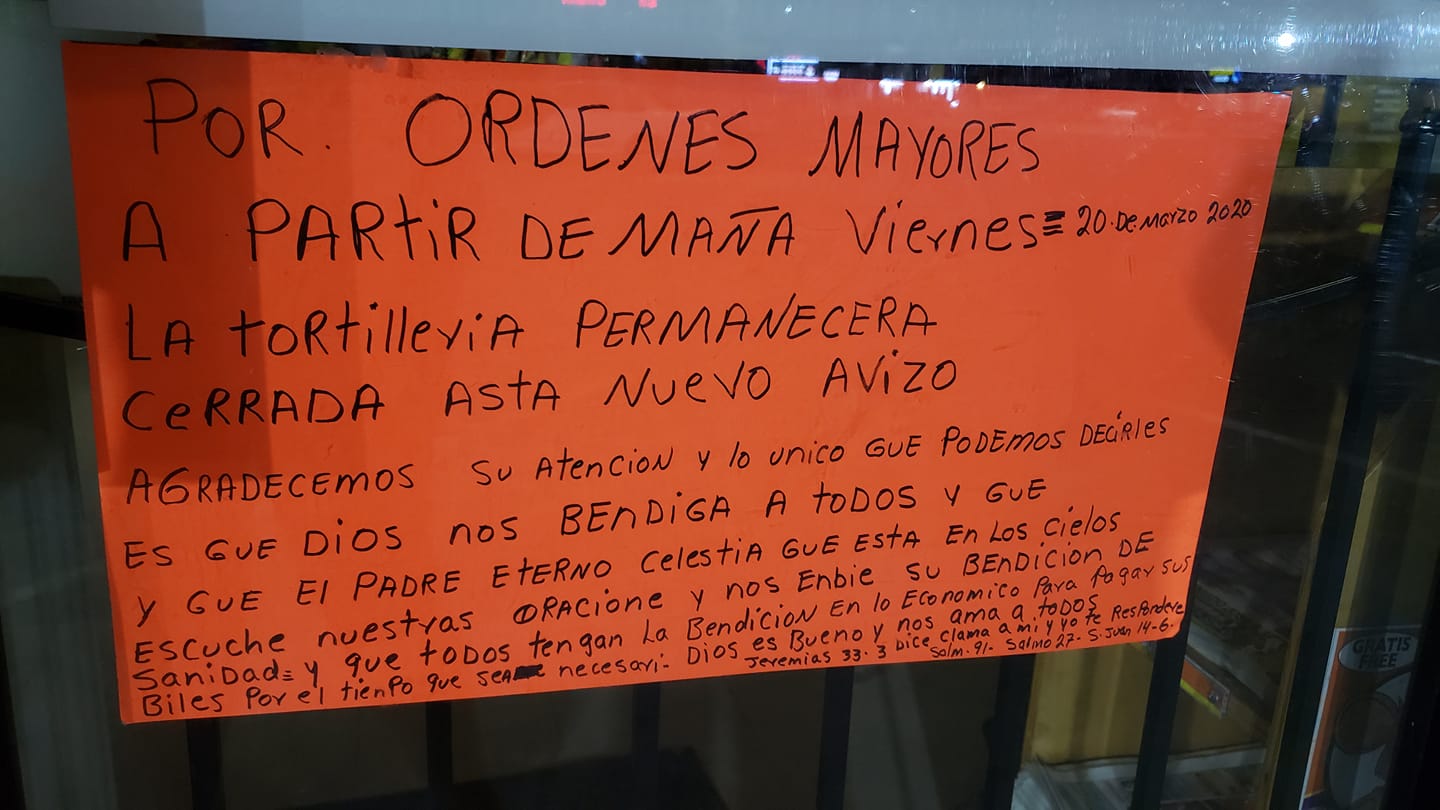 POR. ORDENES MAYORES
A PARTIR DE MAÑA Viernes 20.DE.MARZO 2020
LA tORtilleriA PERMANECERA
CeRRADA AStA NUeVO AVizO
AGRADECEMOS SU AtenCiON y lo unico GUE PODEMOS DECiRles
ES GUE DiOS nOS BENDiGA A tODOS y GUE
y GUE El PADRE EtERNO CelestiA GUE ESTA EN LOS Cielos
ESCUCHE nuestras ORACiOne y nos EnBie SU BENDiCiON DE
SaniDad= y que tODOS tengan la BendiciON En lo Economico Para Pagar SUS
Biles Por el tienPo que SEA necesari- DiOS es Bueno y nos ama a todos
Jeremias 33.3 Dice clama a mi y yo te ResPondere
Salm. 91- Salmo 27- S. Juan 14-6.
GRATIS
FREE